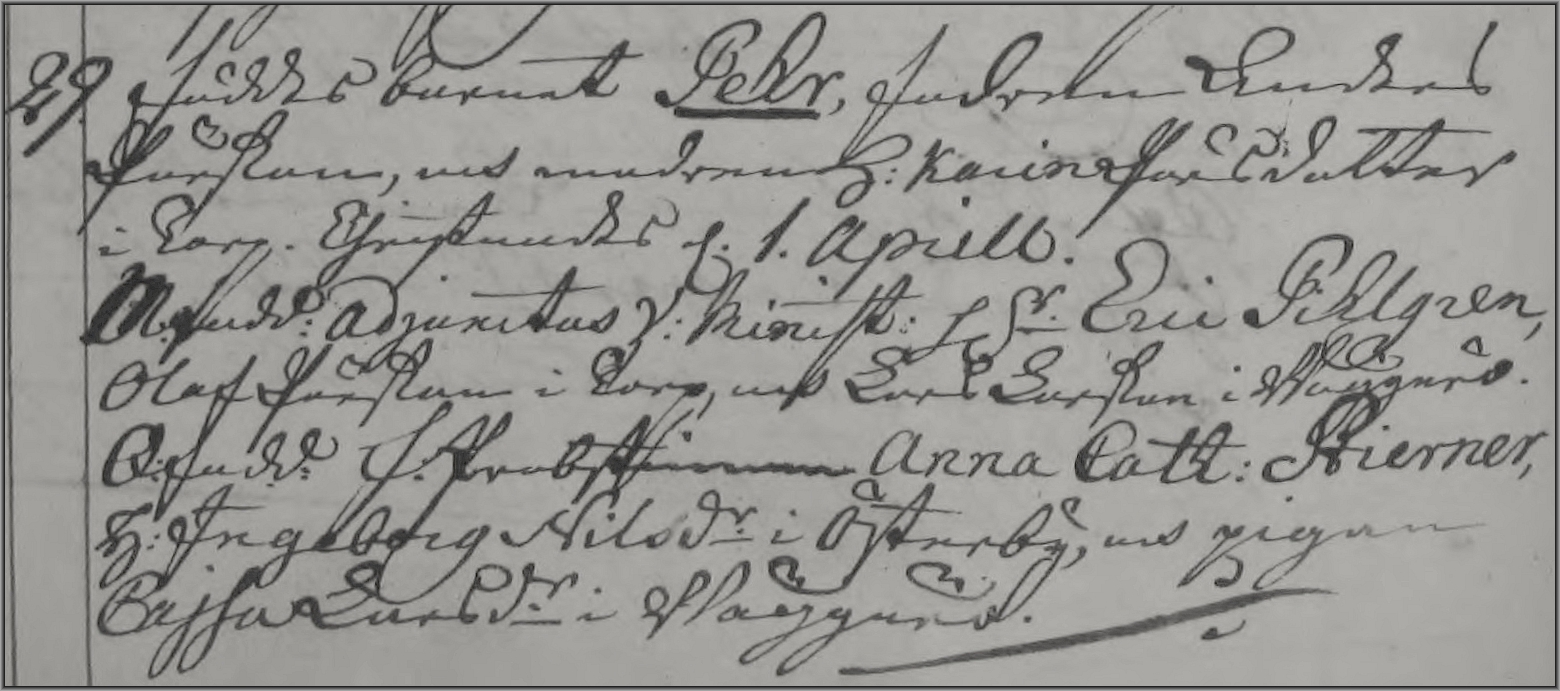 29. föddes barnet Pehr, fadren Anders
Pärsson, och modren H: Karin Pärsdotter
i Torp. Christnades d. 1. Aprill.
M. fadd: Adjunctus V: Minist: H Hr. Eric Pihlgren,
Olof Pärsson i Torp, och Lars Larsson i Wäggerö.
Q: fadd: Fr. Probstinnan Anna Cath: Stierner,
H: Ingeborg Nilsdr i Österby, och pigan
Cajsa Larsdr i Wäggerö.